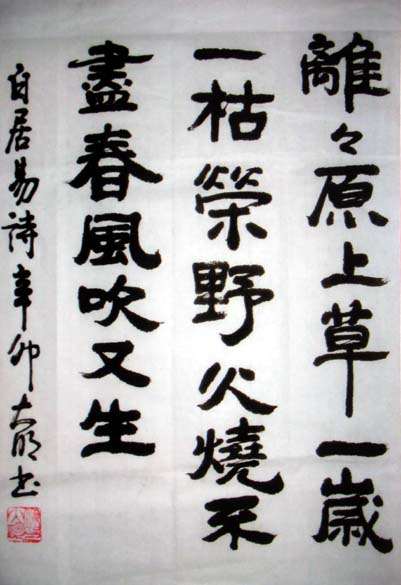 離々原上草一歲
一枯榮野火燒不
盡春風吹又生
白居易詩辛卯大明书